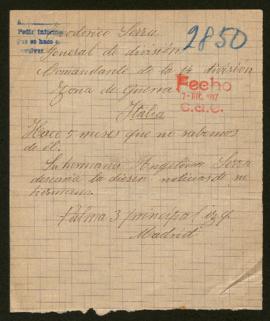 Pedir informe
que se haco
2850
Teoderico Serra
General de división
Comandante de la 14 división
Zona de Guerra
Italia
Fecho
7-DIC. 917
Hace 5 meses que no sabemos
de él.
Su hermana Angelina Serra
desearía la diesen noticias de su
hermano.
Palma 3 principal izq.
Madrid